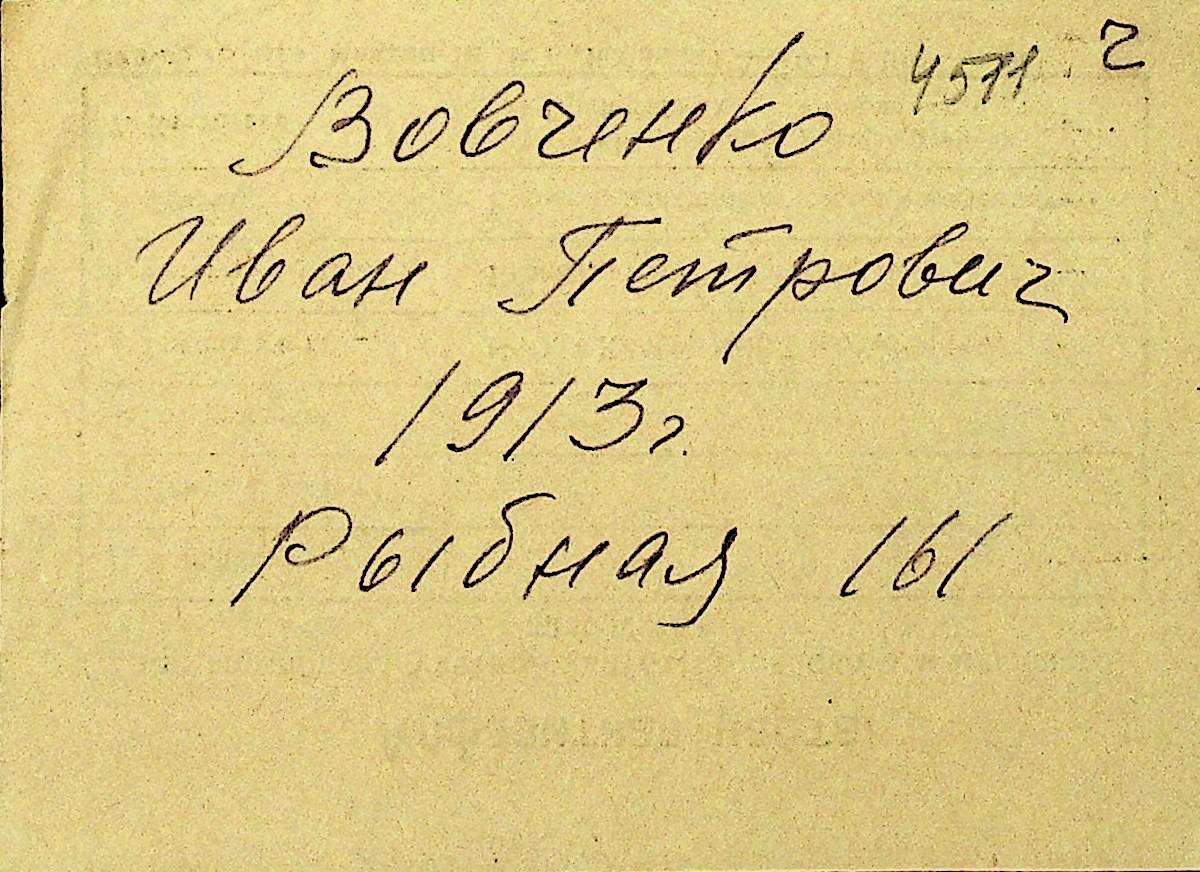 4511 ч
Вовченко
Иван Петрович
1913г.
Рыбная 161